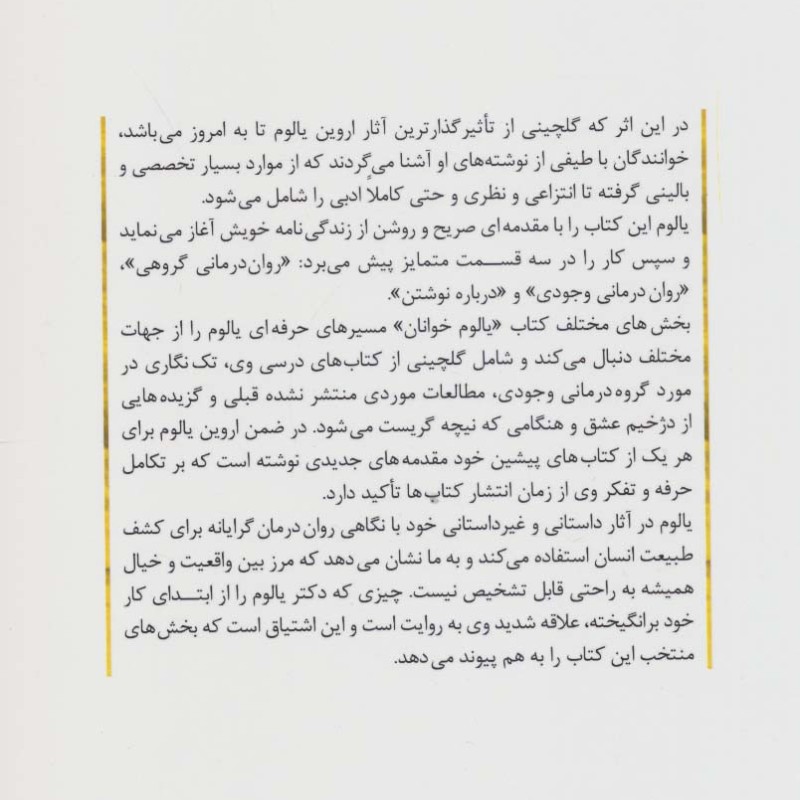 در این اثر که گلچینی از تأثیرگذارترین آثار اروین یالوم تا به امروز می‌باشد،
خوانندگان با طیفی از نوشته‌های او آشنا می‌گردند که از موارد بسیار تخصصی و
بالینی گرفته تا انتزاعی و نظری و حتی کاملاً ادبی را شامل می‌شود.
یالوم این کتاب را با مقدمه‌ای صریح و روشن از زندگی‌نامه خویش آغاز می‌نماید
و سپس کار را در سه قسمت متمایز پیش می‌برد: «روان‌درمانی گروهی»،
«روان‌درمانی وجودی» و «درباره نوشتن».
بخش‌های مختلف کتاب «یالوم خوانان» مسیرهای حرفه‌ای یالوم را از جهات
مختلف دنبال می‌کند و شامل گلچینی از کتاب‌های درسی وی، تک‌نگاری در
مورد گروه‌درمانی وجودی، مطالعات موردی منتشر نشده قبلی و گزیده‌هایی
از دژخیم عشق و هنگامی که نیچه گریست می‌شود. در ضمن اروین یالوم برای
هر یک از کتاب‌های پیشین خود مقدمه‌های جدیدی نوشته است که بر تکامل
حرفه و تفکر وی از زمان انتشار کتاب‌ها تأکید دارد.
یالوم در آثار داستانی و غیرداستانی خود با نگاهی روان‌درمان‌گرایانه برای کشف
طبیعت انسان استفاده می‌کند و به ما نشان می‌دهد که مرز بین واقعیت و خیال
همیشه به راحتی قابل تشخیص نیست. چیزی که دکتر یالوم را از ابتدای کار
خود برانگیخته، علاقه شدید وی به روایت است و این اشتیاق است که بخش‌های
منتخب این کتاب را به هم پیوند می‌دهد.